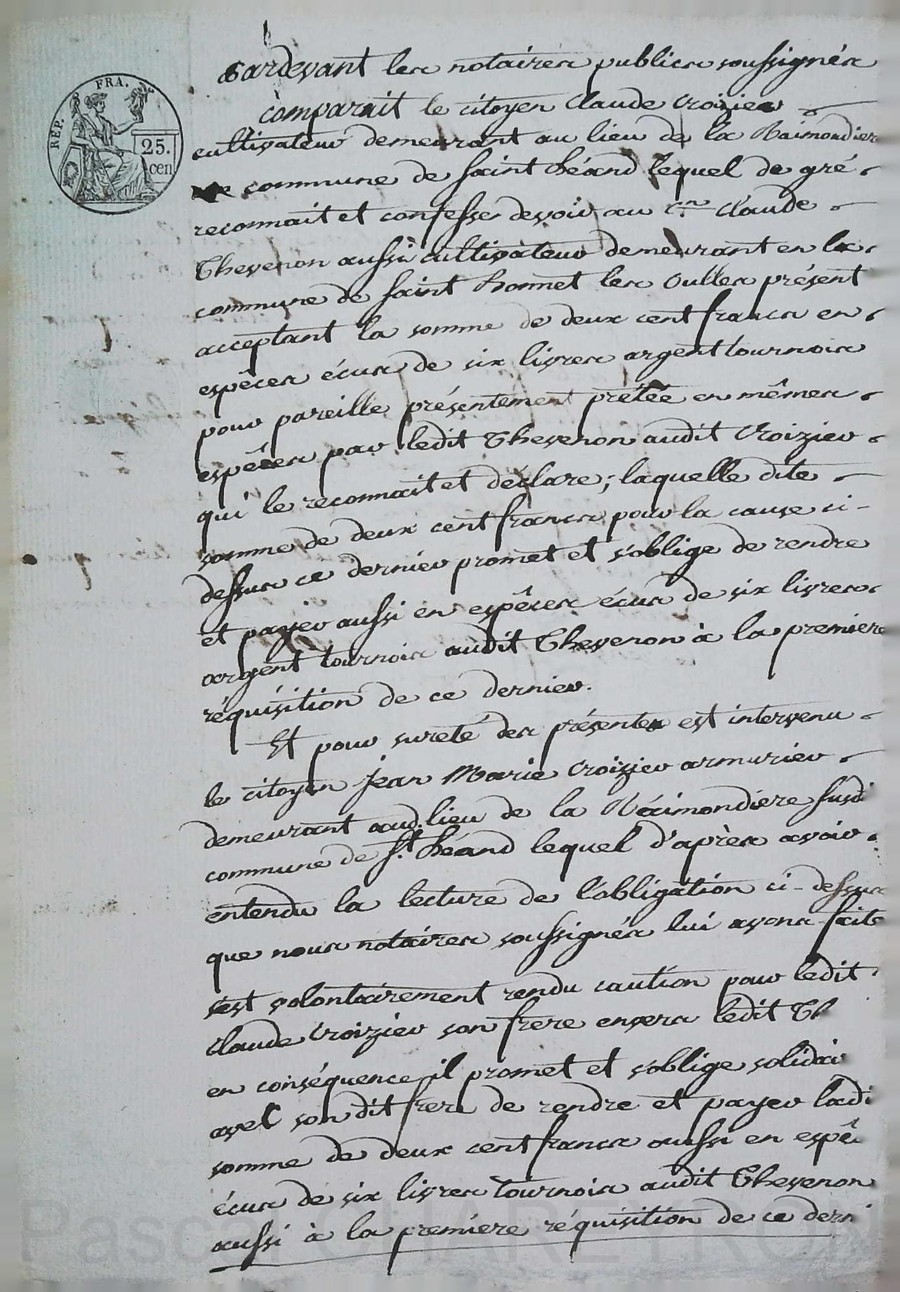 REP. FRA.
25.
cen
Pardevant les notaires publics soussignés
comparait le citoyen Claude Croizier
cultivateur demeurant au lieu de la Raimondiere
commune de saint héand lequel de gré
reconnait et confesse devoir au c.en Claude
Thevenon aussi cultivateur demeurant en la
commune de saint bonnet les oulles présent
acceptant la somme de deux cent francs en
espèces écus de six livres argent tournois
pour pareille présentement prêtée en mêmes
espêces par ledit Thevenon audit Croizier
qui le reconnait et déclare; laquelle dite
somme de deux cent francs pour la cause ci-
dessus ce dernier promet et s'oblige de rendre
et payer aussi en espêces écus de six livres
argent tournois audit Thevenon à la premiere
réquisition de ce dernier.
Et pour sureté des présentes est intervenu
le citoyen Jean Marie Croizier armurier
demeurant aud. lieu de la Raimondiere susdi
commune de St. héand lequel d'après avoir
entendu la lecture de l'obligation ci-dessus
que nous notaires soussignés lui avons faite
s'est volontairement rendu caution pour ledit
Claude Croizier son frere envers ledit Th
en conséquence il promet et s'oblige solidai
avec son dit frere de rendre et payer ladi
somme de deux cent francs aussi en espê
écus de six livres tournois audit Thevenon
aussi à la premiere réquisition de ce derni
Pascal CHAREYRON